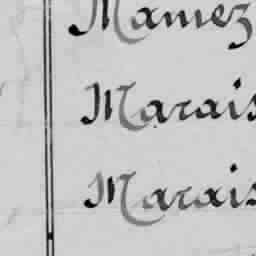 Mamez
Marais
Marais